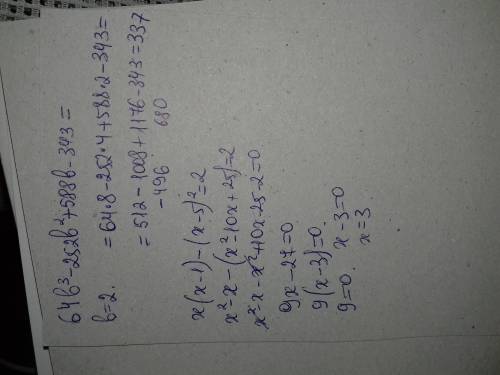 64b³-252b²+588b-343=
b=2. =64·8-252·4+588·2-343=
=512-1008+1176-343=337
-496 680
x(x-1)-(x-5)²=2
x²-x-(x²-10x+25)=2
x²-x-x²+10x-25-2=0
9x-27=0
9(x-3)=0.
9=0. x-3=0
x=3